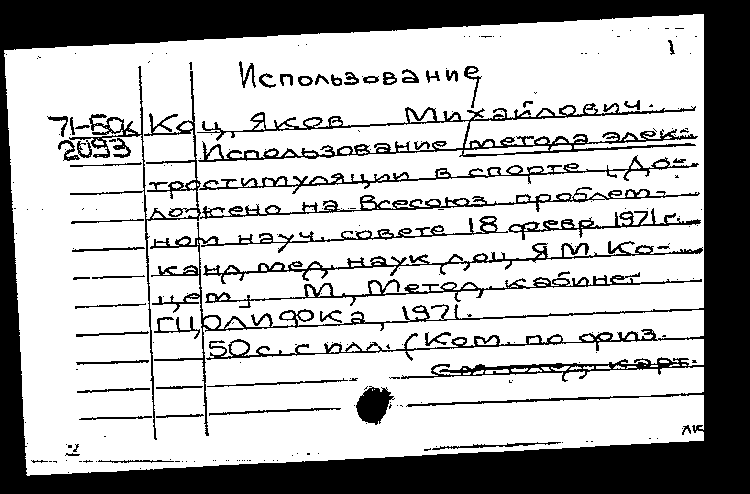 1
Использование
71-БОк Коц, Яков Михайлович.
2093 Использование метода элек-
тростимуляции в спорте [До-
ложено на Всесоюз. проблем-
ном науч. совете 18 февр. 1971 г.
канд. мед. наук доц. Я. М. Ко-
цем]. М., Метод. кабинет
ГЦОЛИФКа, 1971.
50 с. с илл. (Ком. по физ.
См. след. карт.
2